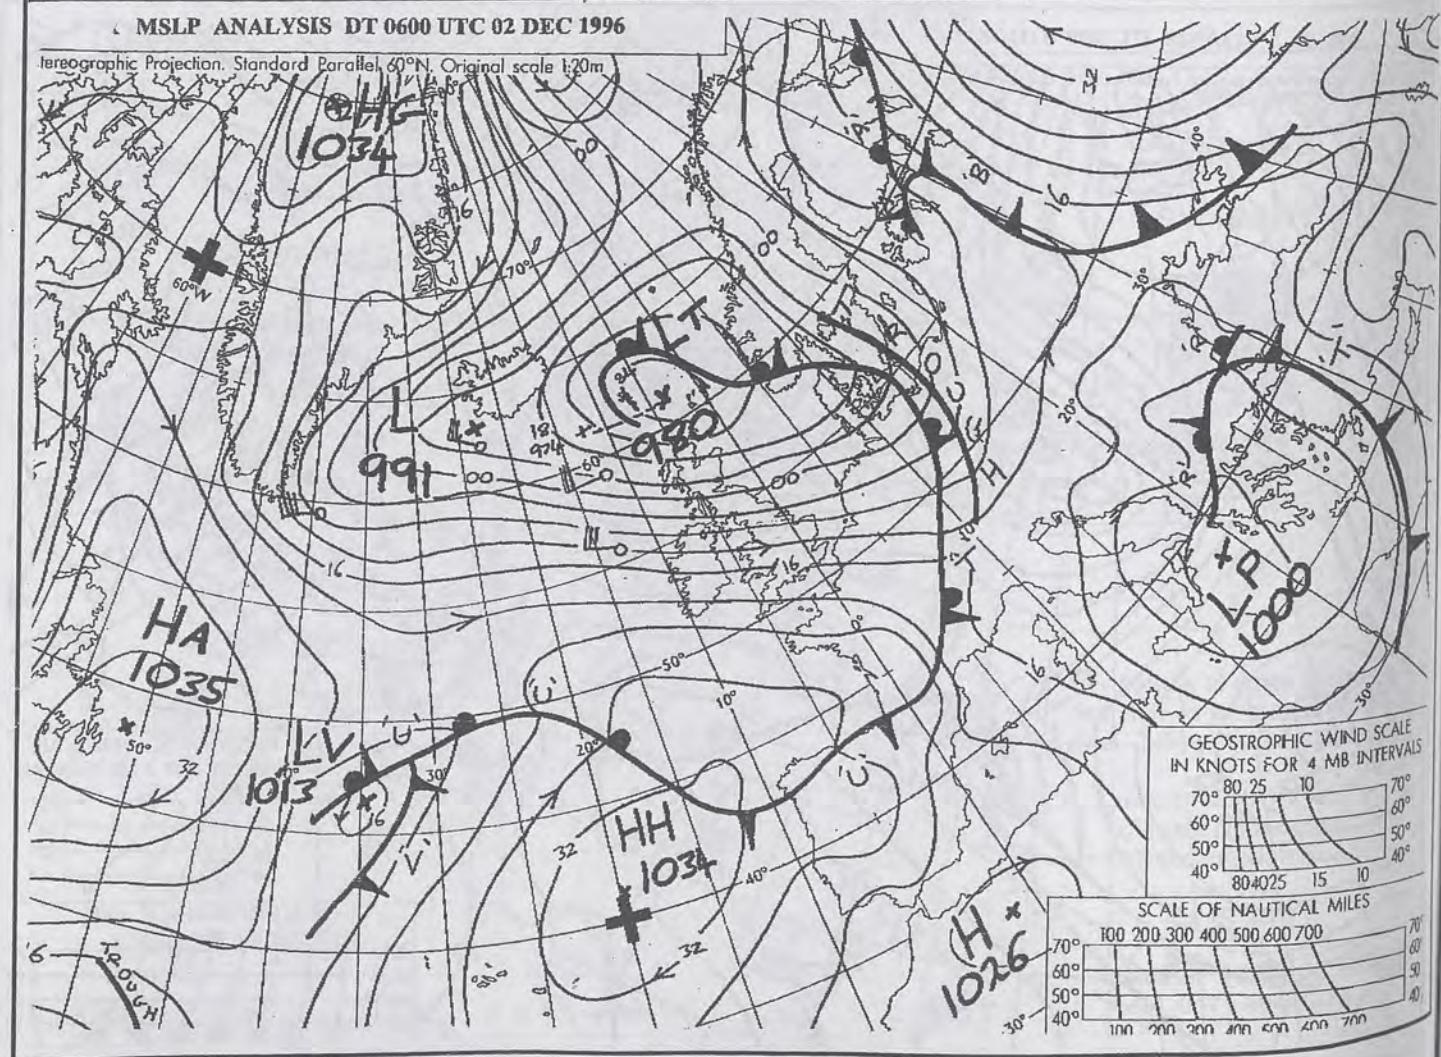 MSLP ANALYSIS DT 0600 UTC 02 DEC 1996
tereographic Projection. Standard Parallel 60°N. Original scale 1:20m
HG
1034
00
32
'A'
'B'
40°
16
16
60°W
70°
00
30°
LT
980
L
991
00
18
974
60
00
TROUGH
20°
'R'
'T'
'R'
H
10°
LP
1000
16
16
HA
1035
50°
32
LV
1013
16
'U'
30°
'V'
'U'
50°
10°
20°
'U'
16
30°
HH
1034
32
32
40°
H
1026
30°
16
TROUGH
GEOSTROPHIC WIND SCALE
IN KNOTS FOR 4 MB INTERVALS
80 25 10
70° 70°
60° 60°
50° 50°
40° 40°
80 40 25 15 10
SCALE OF NAUTICAL MILES
100 200 300 400 500 600 700
70° 70°
60° 60
50° 50
40° 40
100 200 300 400 500 600 700